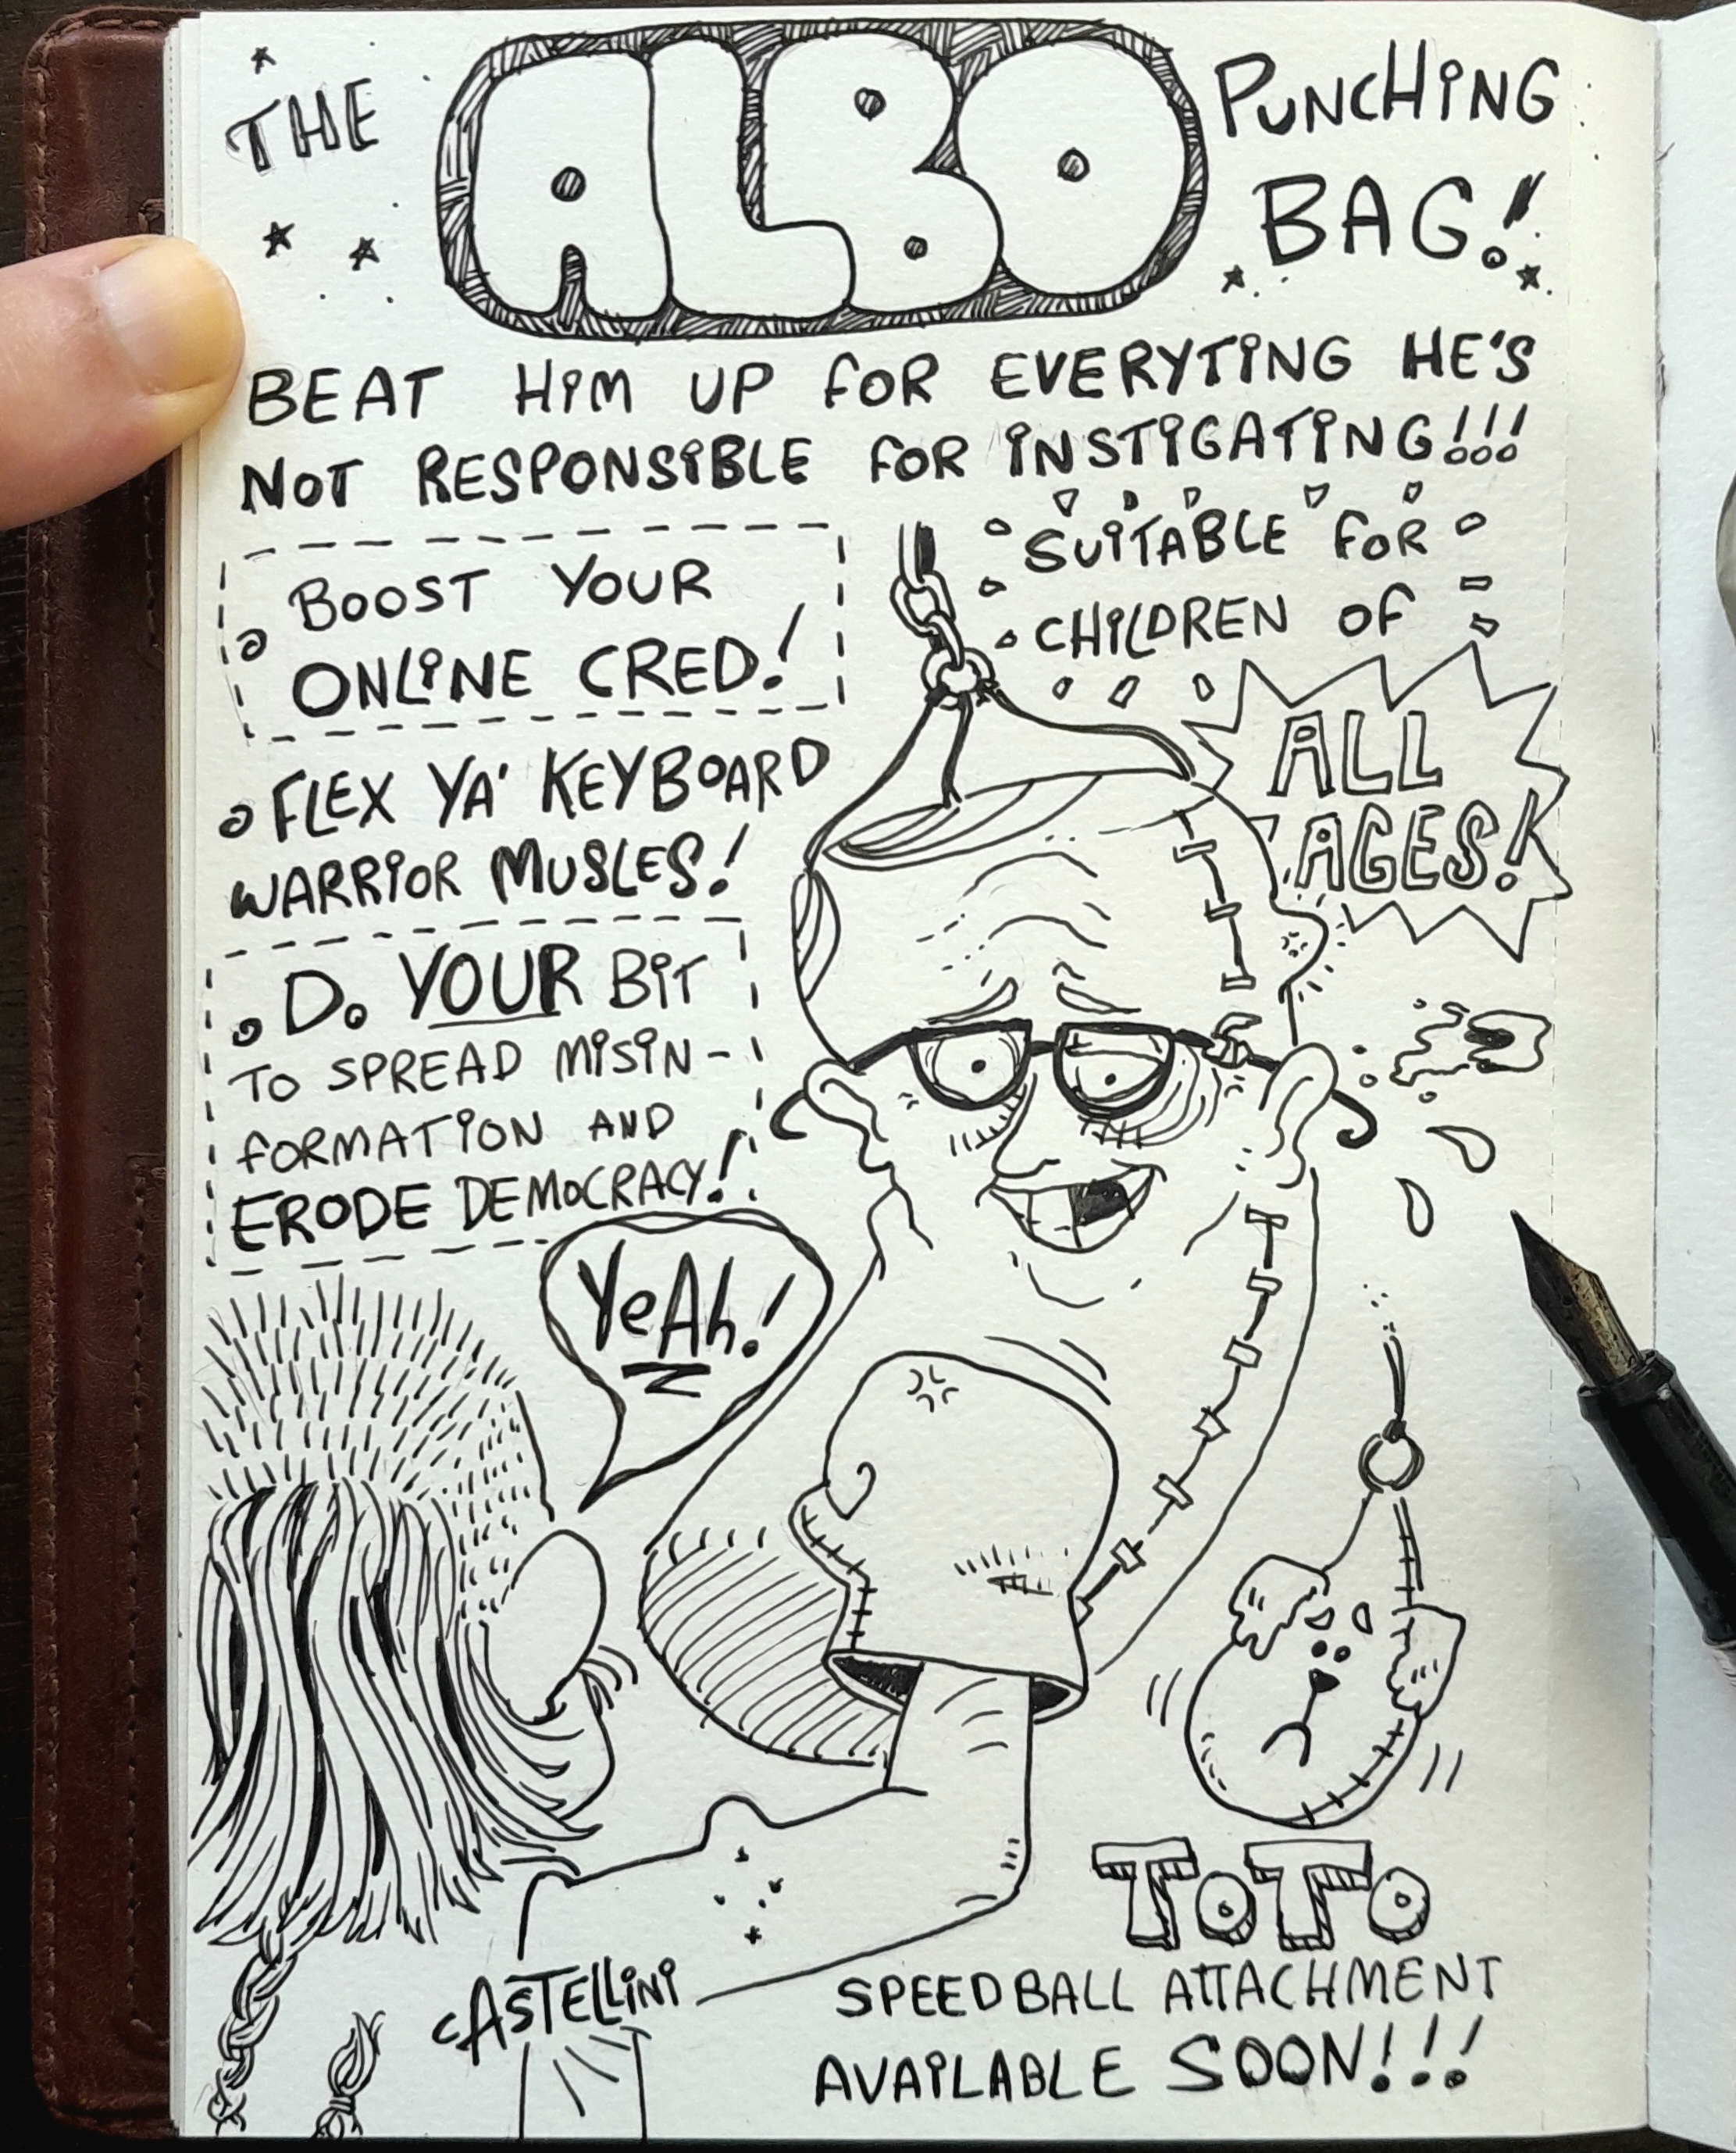 THE ALBO PUNCHING
BAG!
BEAT HIM UP FOR EVERYTING HE'S
NOT RESPONSIBLE FOR INSTIGATING!!!
BOOST YOUR
ONLINE CRED!
FLEX YA' KEYBOARD
WARRIOR MUSLES!
DO YOUR BIT
TO SPREAD MISIN-
FORMATION AND
ERODE DEMOCRACY!
SUITABLE FOR
CHILDREN OF
ALL
AGES!
YEAH!
TOTO
SPEEDBALL ATTACHMENT
AVAILABLE SOON!!!
CASTELLINI